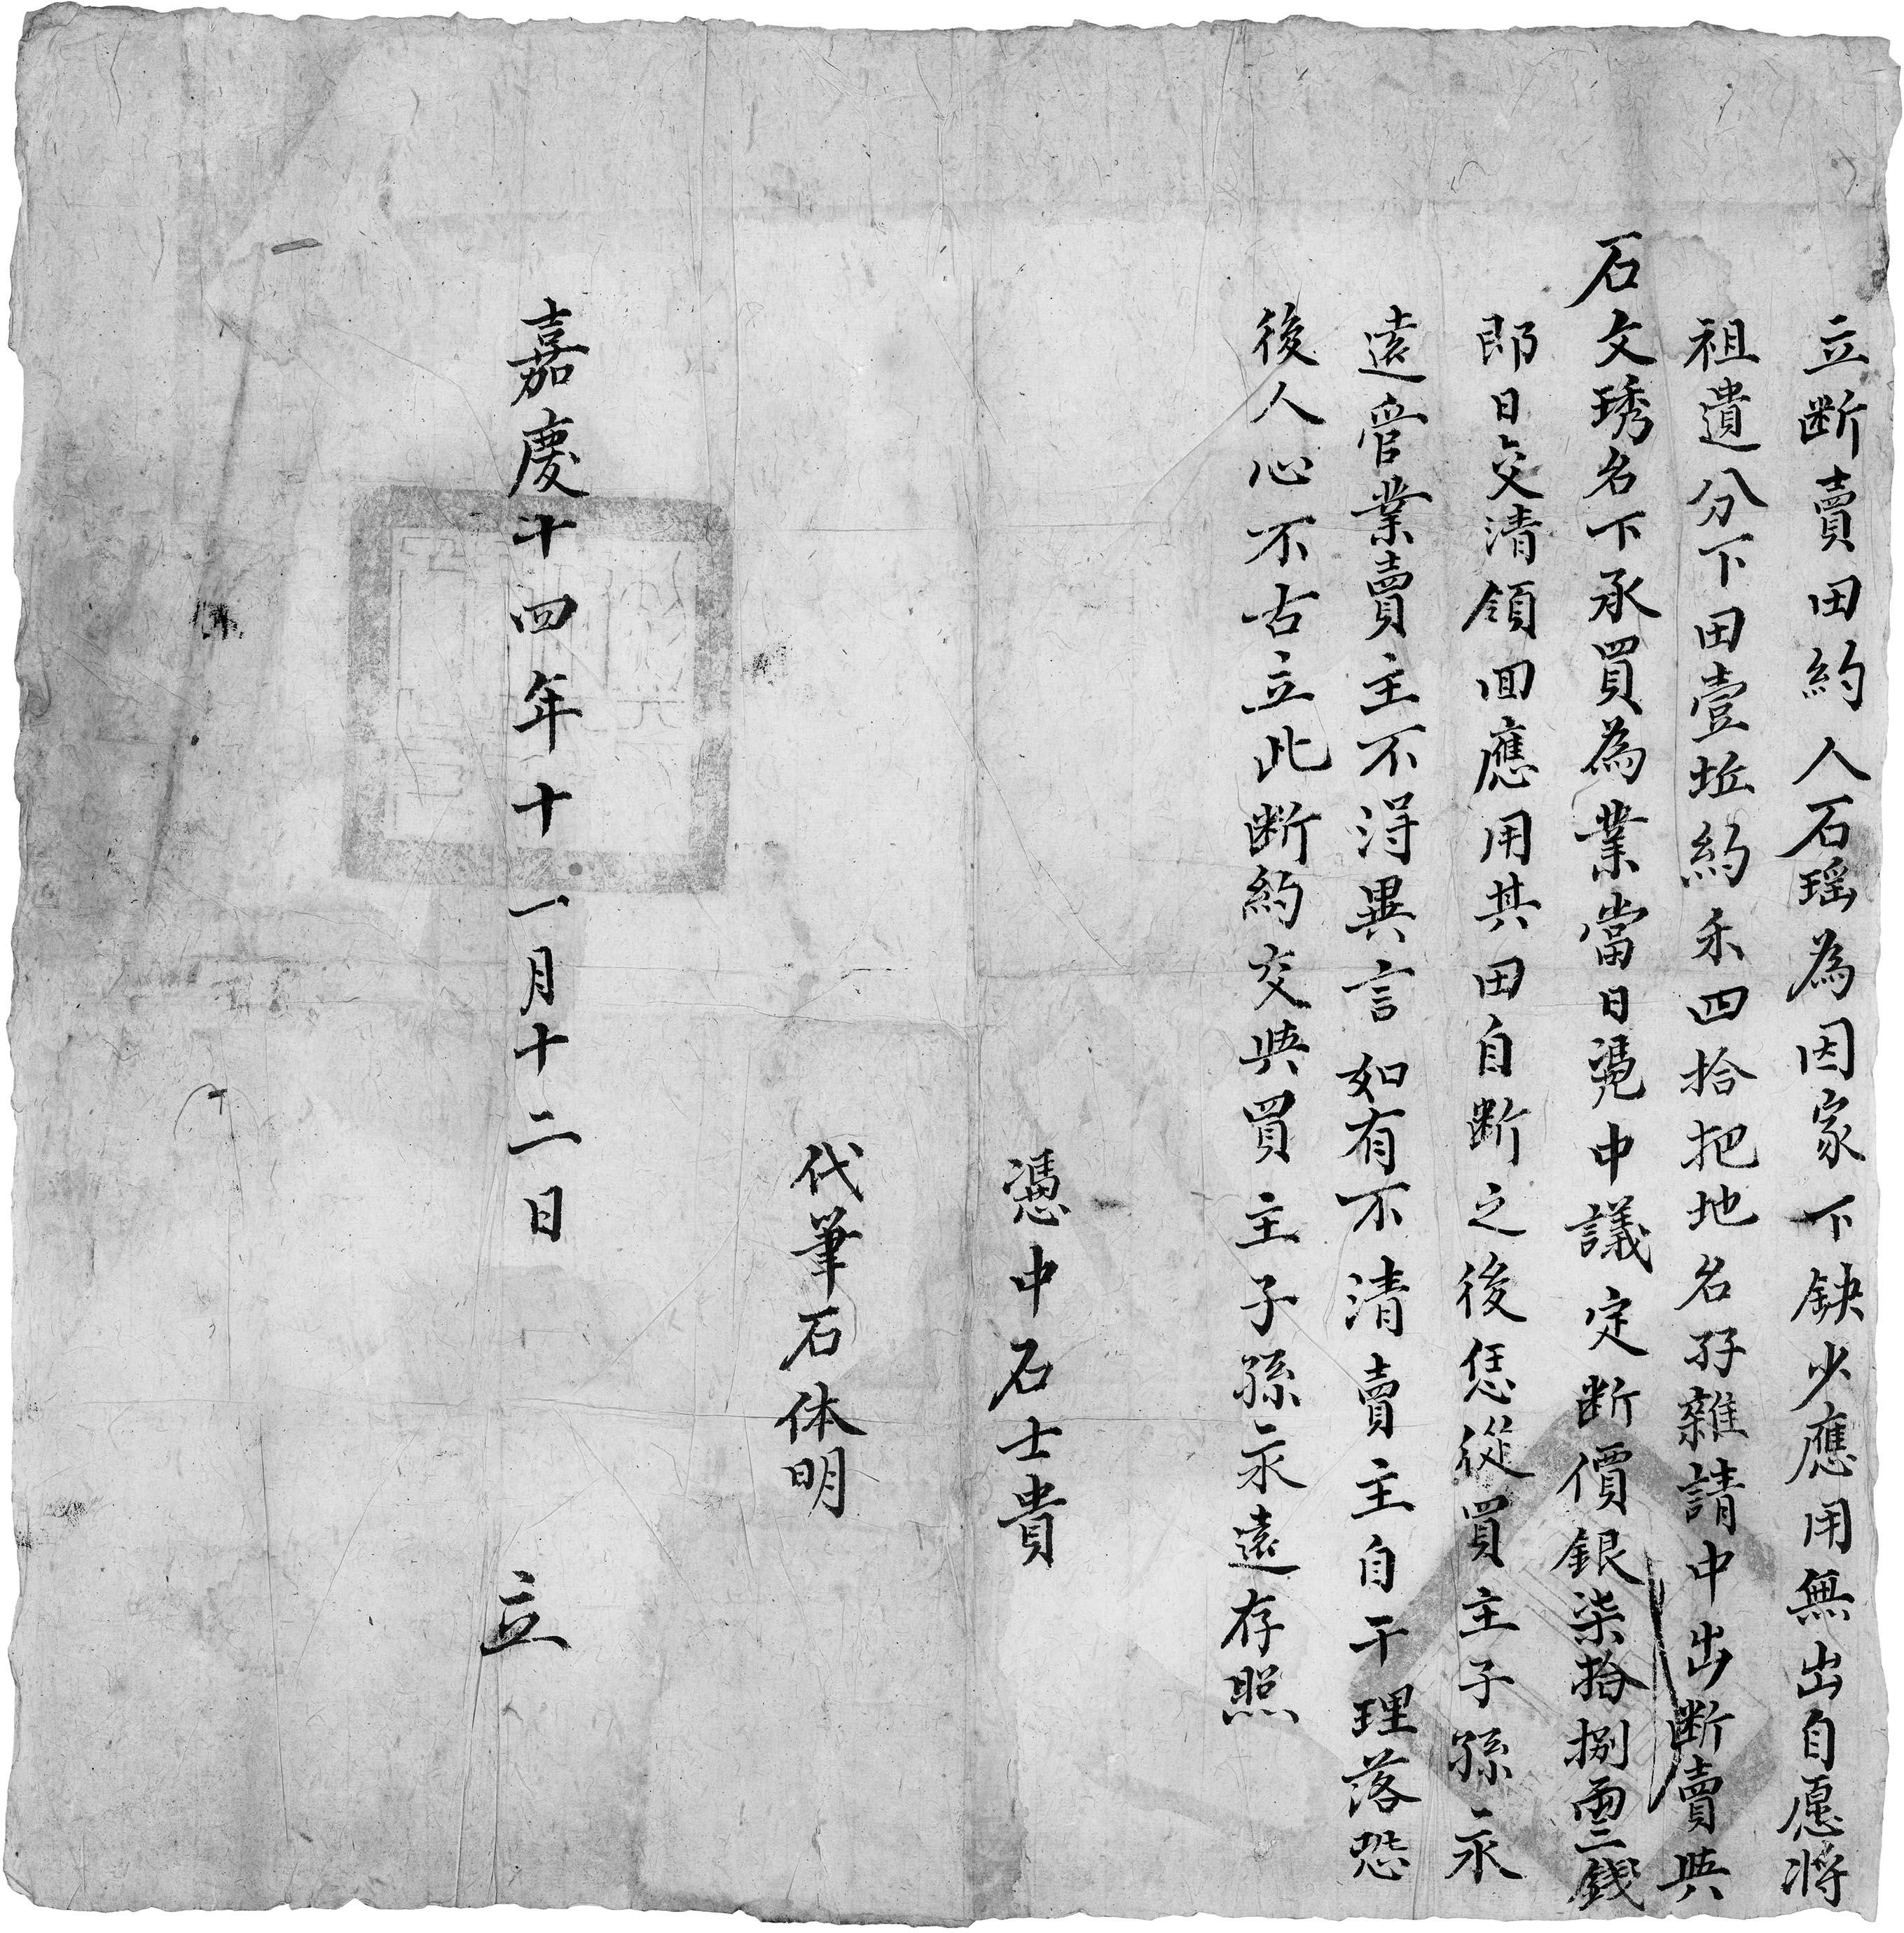 立断賣田約人石瑶為因家下缺少應用無出自愿將
祖遺分下田壹坵約禾四拾把地名孖雜請中出断賣與
石文琇名下承買為業當日凴中議定断價銀柒拾捌両三錢
即日交清領回應用其田自断之後恁從買主子孫永
遠管業賣主不淂異言如有不清賣主自干理落恐
後人心不古立此断約交與買主子孫永遠存照
憑中石士貴
代筆石体明
嘉慶十四年十一月十二日 立